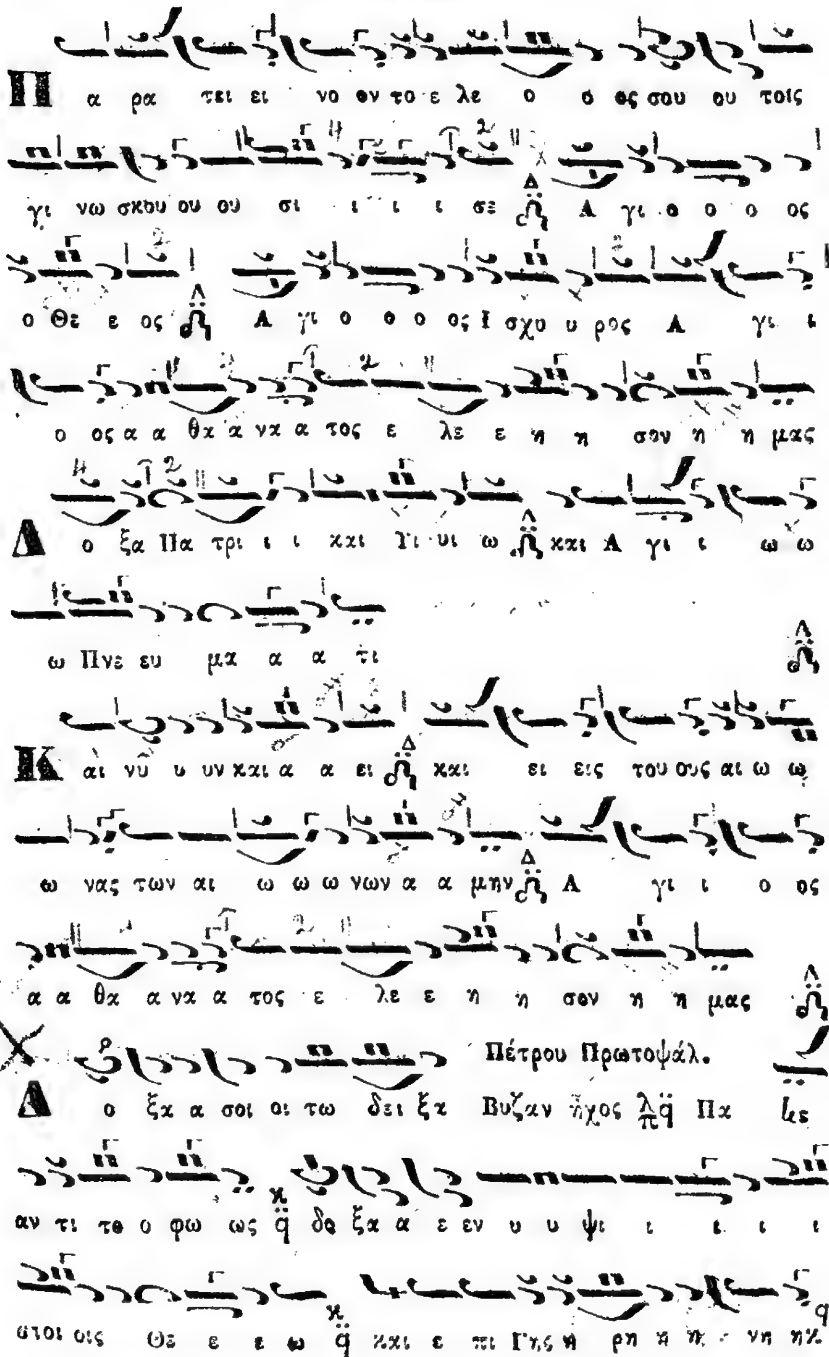 Π α ρα τει ει νο ον το ε λε ο ο ος σου ου τοις
γι νω σκου ου ου σι ι ι ι σε Α γι ο ο ο ος
ο Θε ε ος Α γι ο ο ο ος Ι σχυ υ ρος Α γι ι
ο ος α α θα α να α τος ε λε ε η η σον η η μας
Δ ο ξα Πα τρι ι ι και Υι υι ω και Α γι ι ω ω
ω Πνε ευ μα α α τι
Κ αὶ νῦ υ υν και α α ει και ει εις του ους αι ω ω
ω νας των αι ω ω ω νων α α μην Α γι ι ο ος
α α θα α να α τος ε λε ε η η σον η η μας
Πέτρου Πρωτοψάλ.
Δ ο ξα α σοι οι τω δει ξα Βυζαν ἦχος λ π q Πα κε
αν τι το ο φω ως δο ξα α ε εν υ υ ψι ι ι ι ι
στοι οις Θε ε ε ω και ε πι Γης η ρη η η νη